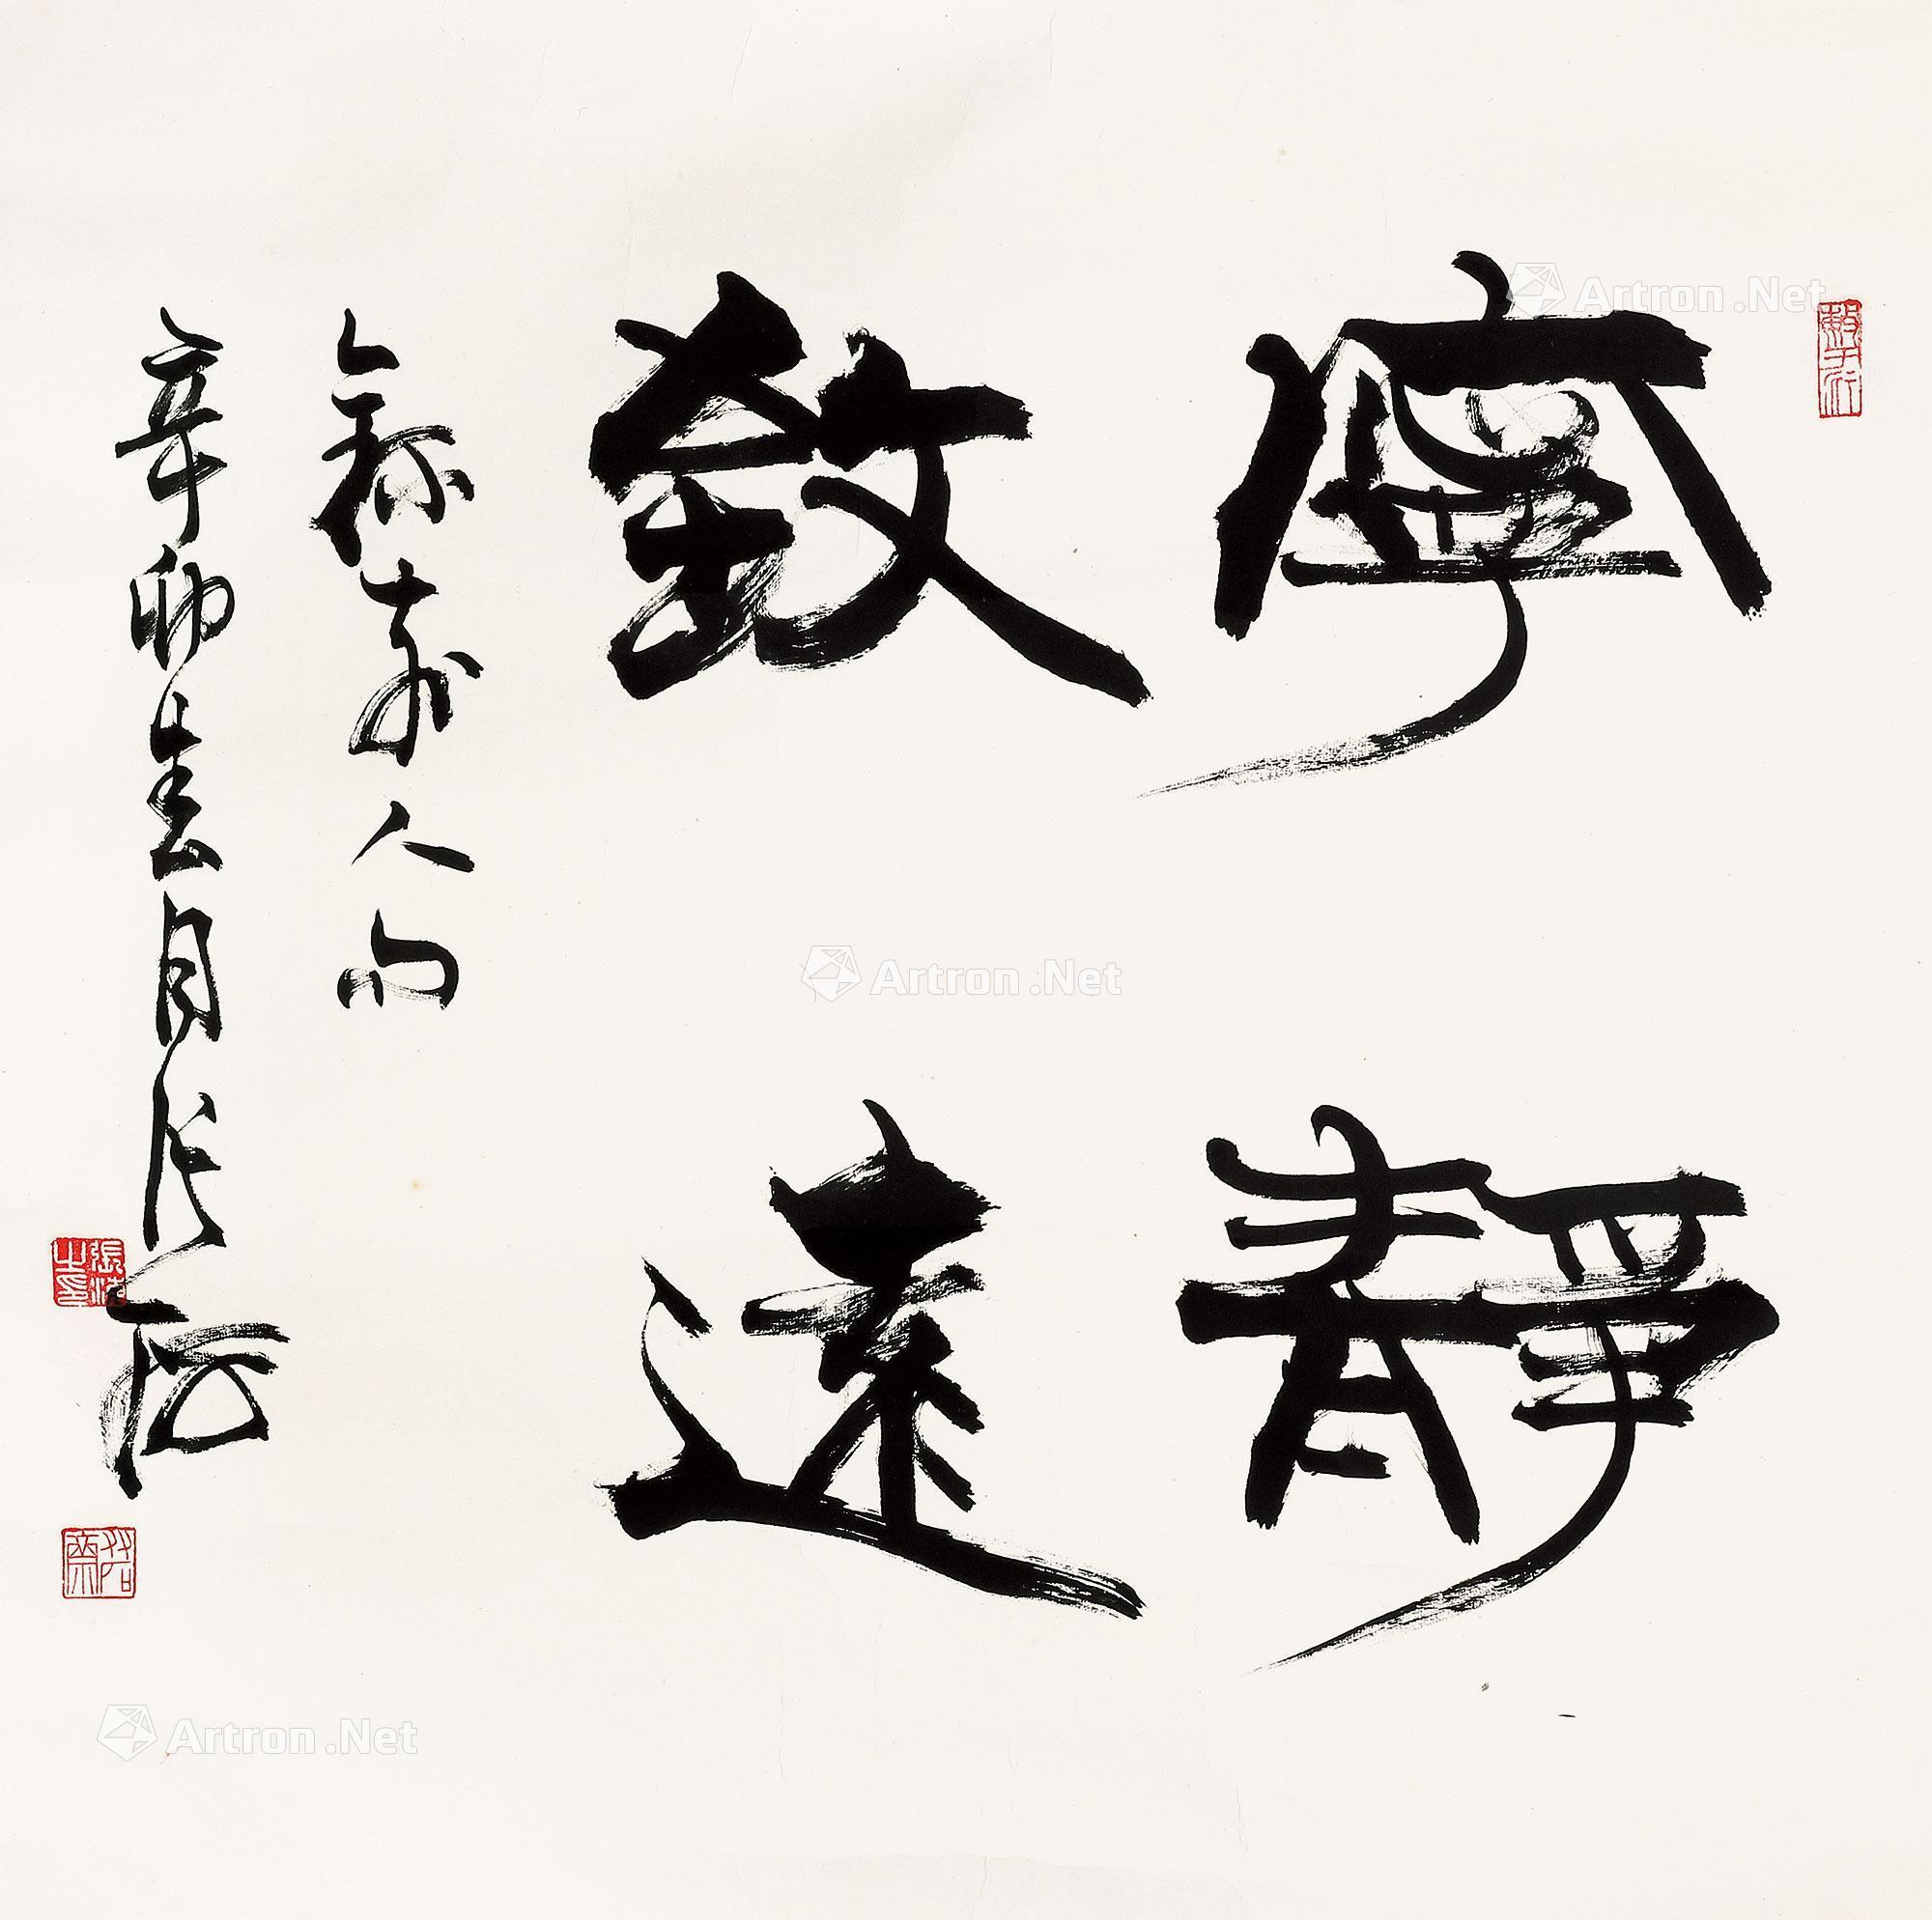 寧靜
致遠
錄前人句
辛卯春月張海
張海之印
Artron.Net
Artron.Net
Artron.Net